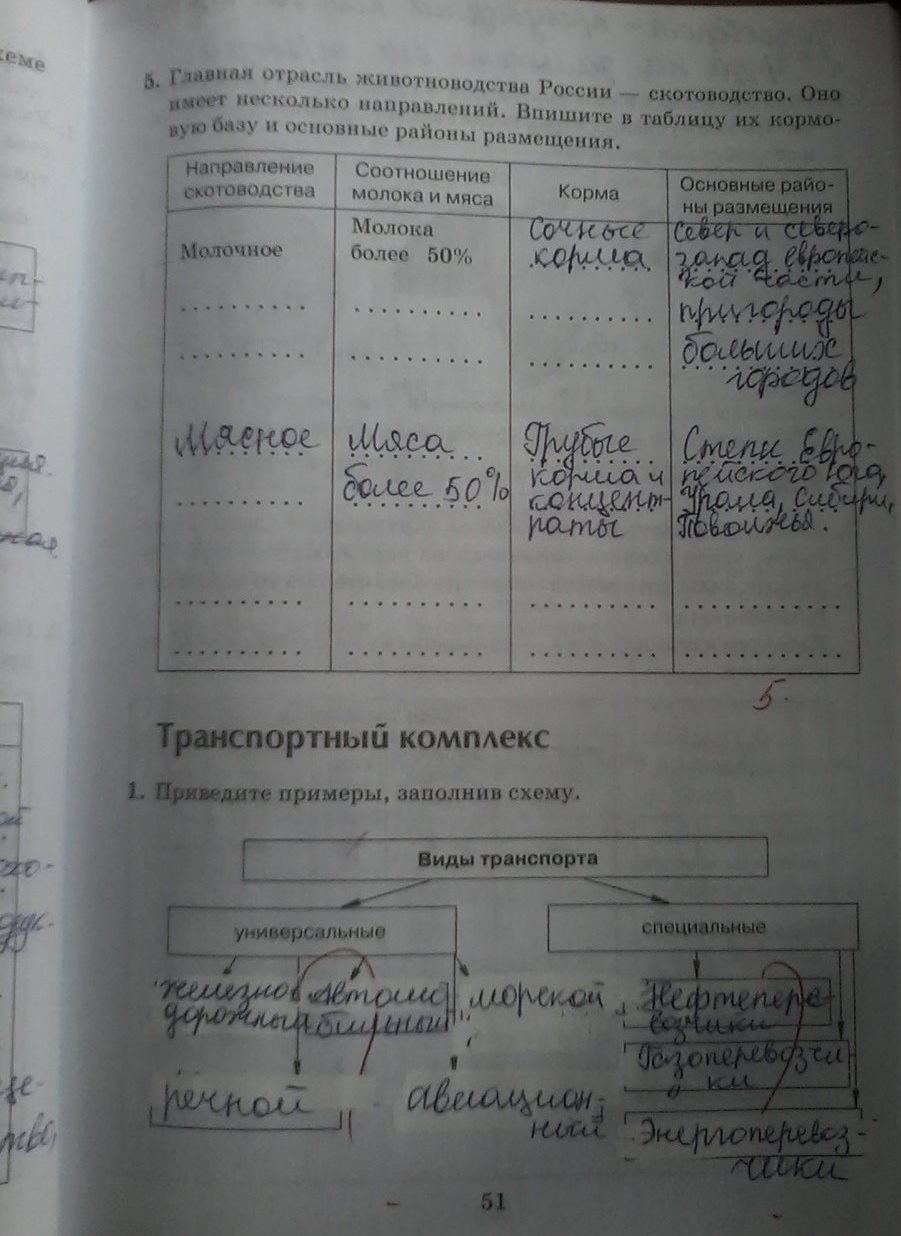 хеме
5. Главная отрасль животноводства России — скотоводство. Оно
имеет несколько направлений. Впишите в таблицу их кормо-
вую базу и основные районы размещения.
Направление скотоводства
Соотношение молока и мяса
Корма
Основные райо-
ны размещения
Молочное
Молока
более 50%
Сочные
корма
Север и северо-
запад европейс-
кой части,
пригороды
больших
городов
Мясное
Мяса
более 50%
Грубые
корма и
концент-
раты
Степи Евро-
пейского юга,
Урала, Сибири,
Поволжья.
5.
Транспортный комплекс
1. Приведите примеры, заполнив схему.
Виды транспорта
универсальные
специальные
железно
дорожный
автомо
бильный
морской
Нефтепере
возчики
Газоперевозчи
ки
речной
авиацион-
ный
Энергоперевоз-
чики
51